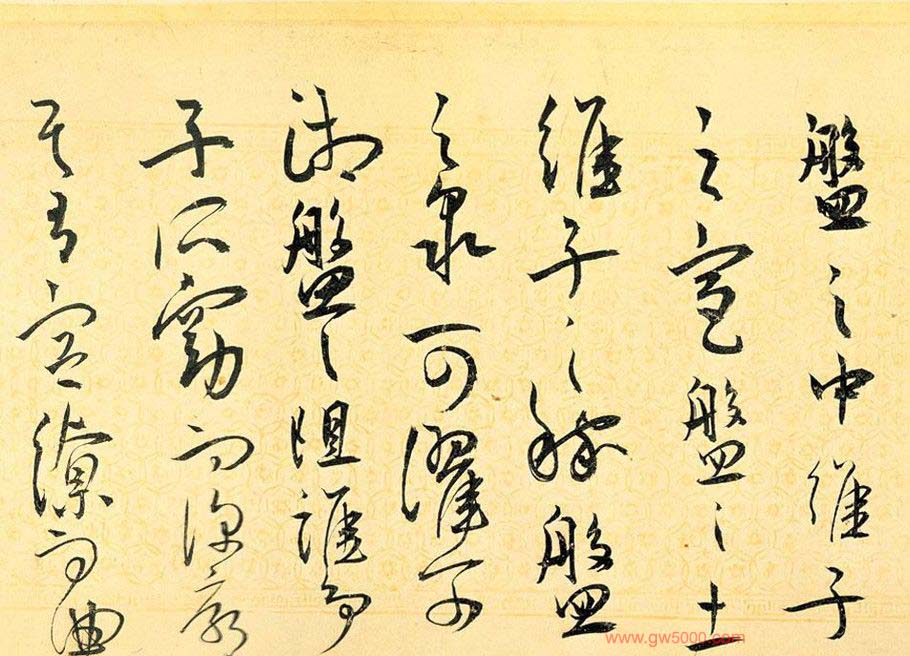 盤之中維子
之宮盤之土
維子之稼盤
之泉可濯可
湘盤之阻誰爭
子所窈而深廓
其有容繚而曲
www.gw5000.com